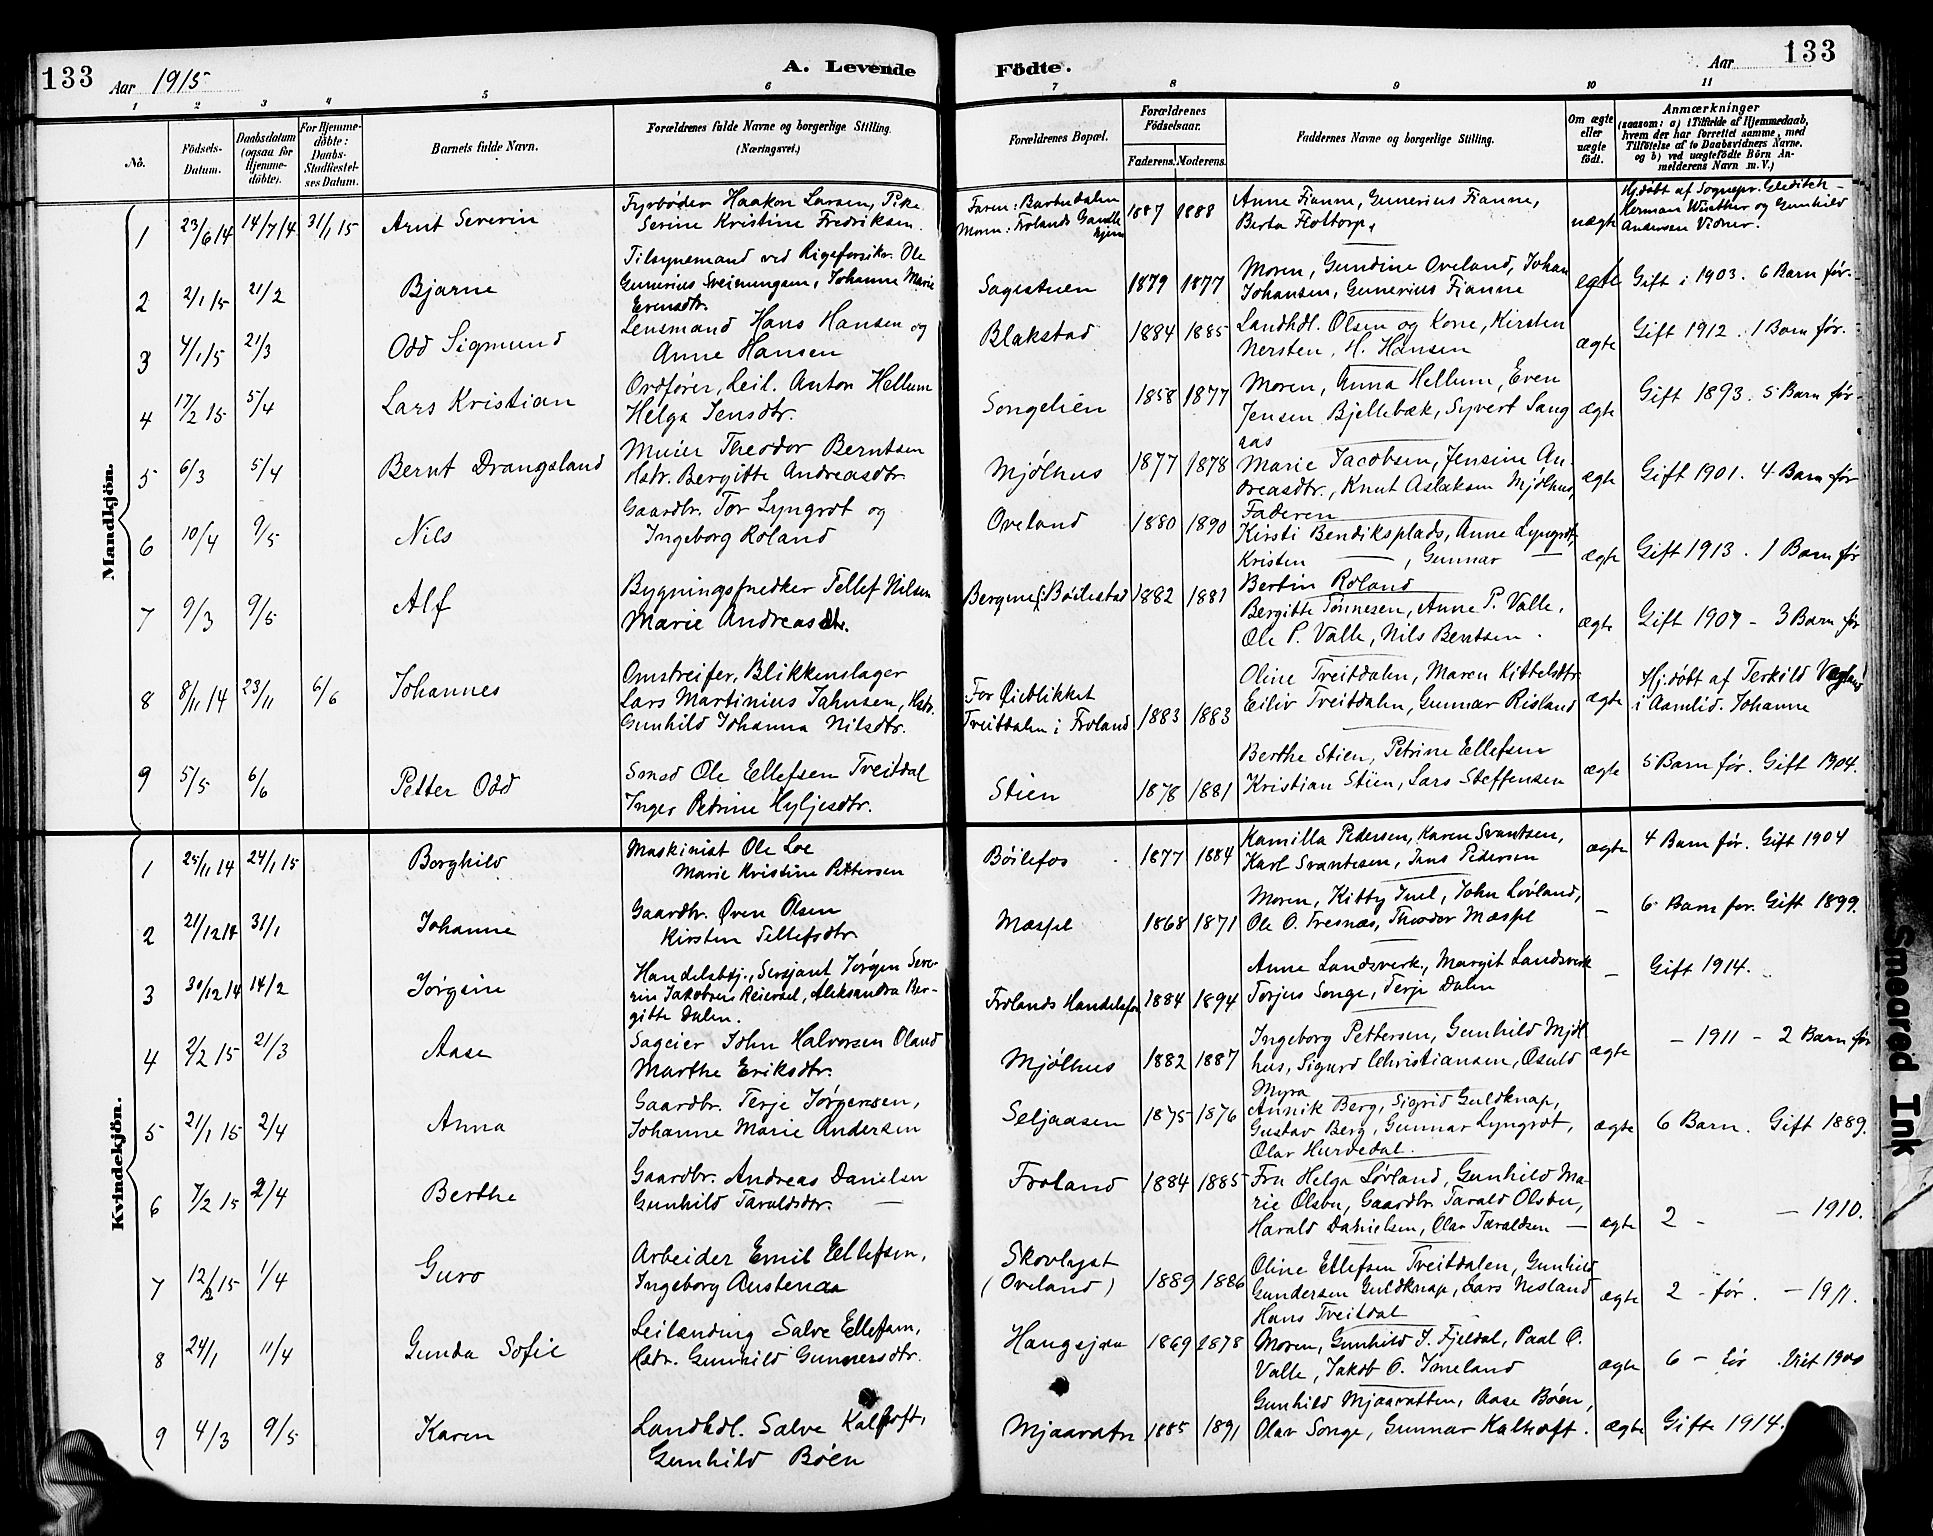 133 Aar 1915 A. Levende Födte. Aar 133
1 2 3 4 5 6 7 8 9 10 11
No.
Födsels-Datum.
Daabsdatum (ogsaa for Hjemme-döbte).
For Hjemme-döbte: Daabs-Stadfæstel-ses Datum.
Barnets fulde Navn.
Forældrenes fulde Navne og borgerlige Stilling.
(Næringsvei.)
Forældrenes Bopæl.
Forældrenes Födselsaar.
Faderens. Moderens.
Faddernes Navne og borgerlige Stilling.
Om ægte eller uægte födt.
Anmærkninger
(saasom: a) i Tilfælde af Hjemmedaab,
hvem der har forrettet samme, med
Tilföielse af to Daabsvidners Navne.
og b) ved uægtefödte Börn An-
melderens Navn m. V.)
Mandkjön.
1 23/6 14 14/7 14 31/1 15 Arnt Severin
Fyrbøder Haakon Larsen, Pike
Serine Kristine Fredriksen.
Faren: Barbudalen
Moren: Frolands Gamle hjem
1887 1888
Anne Fianne, Gunerius Fianne,
Berta Floltorp,
uægte
Hj.døbt af Sognepr. Gleditch –
Herman Wuttker og Gunhild
Andersen Vidner.
2 2/1 15 21/2 Bjarne
Tilsynsmand ved Rigsforsikr. Ole
Gunerius Sveinungsen, Johanne Marie
Evensdtr.
Sagestuen 1879 1877
Moren, Gundine Oveland, Johan
Johansen, Gunerius Fianne
ægte
Gift i 1903. 6 Barn før.
3 4/1 15 21/3 Odd Sigmund
Lensmand Hans Hansen og
Anne Hansen
Blakstad 1884 1885
Landhdl. Olsen og Kone, Kirsten
Nersten, H. Hansen
ægte
Gift 1912. 1 Barn før.
4 17/2 15 5/4 Lars Kristian
Ordfører, Leil. Anton Hellum
Helga Jensdtr.
Songeliën 1858 1877
Moren, Anna Hellum, Even
Jensen Bjellebæk, Syvert Sang
aas
ægte
Gift 1893. 5 Barn før –
5 6/3 5/4 Bernt Drangsland
Murer Theodor Berntsen
Hstr. Bergitte Andreasdtr
Mjølhus 1877 1878
Marie Jacobsen, Jensine An-
dreasdtr., Knut Aslaksen Mjølhus,
Faderen
ægte
Gift 1901. 4 Barn før
6 10/4 9/5 Nils
Gaardbr. Tor Lyngrot og
Ingeborg Roland
Oveland 1880 1890
Kirsti Bendiksplads, Anne Lyngrot,
Kristen —, Gunnar —
Bertin Roland
ægte
Gift 1913. 1 Barn før
7 9/3 9/5 Alf
Bygningssnedker Tellef Nilsen
Marie Andreasdtr.
Bøilestad 1882 1881
Bergitte Tønnesen, Anne P. Valle,
Ole P. Valle, Nils Bentsen.
ægte
Gift 1907 – 3 Barn før
8 8/11 14 23/11 6/6 Johannes
Omstreifer, Blikkenslager
Lars Martinius Jahnsen, Hstr.
Gunhild Johanna Nilsdtr.
For Øieblikket
Treitdalen i Froland
1883 1883
Oline Treitdalen, Maren Kittelsdtr
Eiliv Treitdalen, Gunnar Risland
ægte
Hj.døbt af Terkild
i Aamlid. Johanne
9 5/5 6/6 Petter Odd
Smed Ole Ellefsen Treitdal
Inger Petrine Hyljesdtr.
Stien 1878 1881
Berthe Stien, Petrine Ellefsen
Kristian Stien, Lars Steffensen
ægte
5 Barn før. Gift 1904.
Kvindekjön.
1 25/11 14 24/1 15 Borghild
Maskinist Ole Loe
Marie Kristine Pettersen
Bøilefos 1877 1884
Kamilla Pedersen, Karen Svantsen,
Karl Svantesen, Jens Pedersen
ægte
4 Barn før. Gift 1904
2 21/12 14 31/1 Johanne
Gaardbr. Øven Olsen
Kirsten Tellefsdtr
Mæspel 1868 1871
Moren, Kitty Juel, John Løvland,
Ole O. Tresnæs, Theodor Mæspel
–
6 Barn før. Gift 1899.
3 30/12 14 14/2 Jørgine
Handelsbtj., Sersjant Jørgen Seve-
rin Jakobsens Reiersøl, Aleksandra Ber-
gitte Dalen.
Frolands Handelsfor 1884 1894
Anne Landsverk, Margit Landsverk
Torjus Songe, Terje Dalen
–
Gift 1914.
4 2/2 15 21/3 Aase
Sageier John Halvorsen Oland
Marthe Eriksdtr.
Mjølhus 1882 1887
Ingeborg Pettersen, Gunhild Mjøl
hus, Sigurd Christiansen, Osuld
Myra
ægte
– 1911 – 2 Barn før
5 21/1 15 2/4 Anna
Gaardbr. Terje Jørgensen,
Johanne Marie Andersen
Seljaasen 1875 1876
Annik Berg, Sigrid Guldknap,
Gustav Berg, Gunnar Lyngrot,
Olav Hurvedal.
ægte
6 Barn. Gift 1889.
6 7/2 15 2/4 Berthe
Gaardbr. Andreas Danielsen
Gunhild Taraldsdtr. —
Froland 1884 1885
Fru Helga Løvland, Gunhild Ma-
rie Olsbu, Gaardbr Tarald Olsbu,
Harald Danielsen, Olav Taraldsen —
ægte
2 – – 1910.
7 12/2 15 1/4 Guro
Arbeider Emil Ellefsen,
Ingeborg Austenaa
Skovlyst
(Oveland)
1889 1886
Oline Ellefsen Treitdalen, Gunhild
Gundersen Guldknap, Lars Nesland
Hans Treitdal
ægte
2 – før. – 1911.
8 24/1 11/4 Gunda Sofie
Leilænding Salve Ellefsen,
Hstr. Gunhild Gunnersdtr.
Haugsjaa 1869 1878
Moren, Gunhild T. Fjeldal, Paal O.
Valle, Jakob O. Imeland
ægte
6 – før Viet 1900
9 4/3 9/5 Karen
Landhdl. Salve Kalhoft,
Gunhild Bøen
Mjaavatn 1885 1891
Gunhild Mjaavatten, Aase Bøen,
Olav Songe, Gunnar Kalhoft.
ægte
Gifte 1914.
Smeared Ink